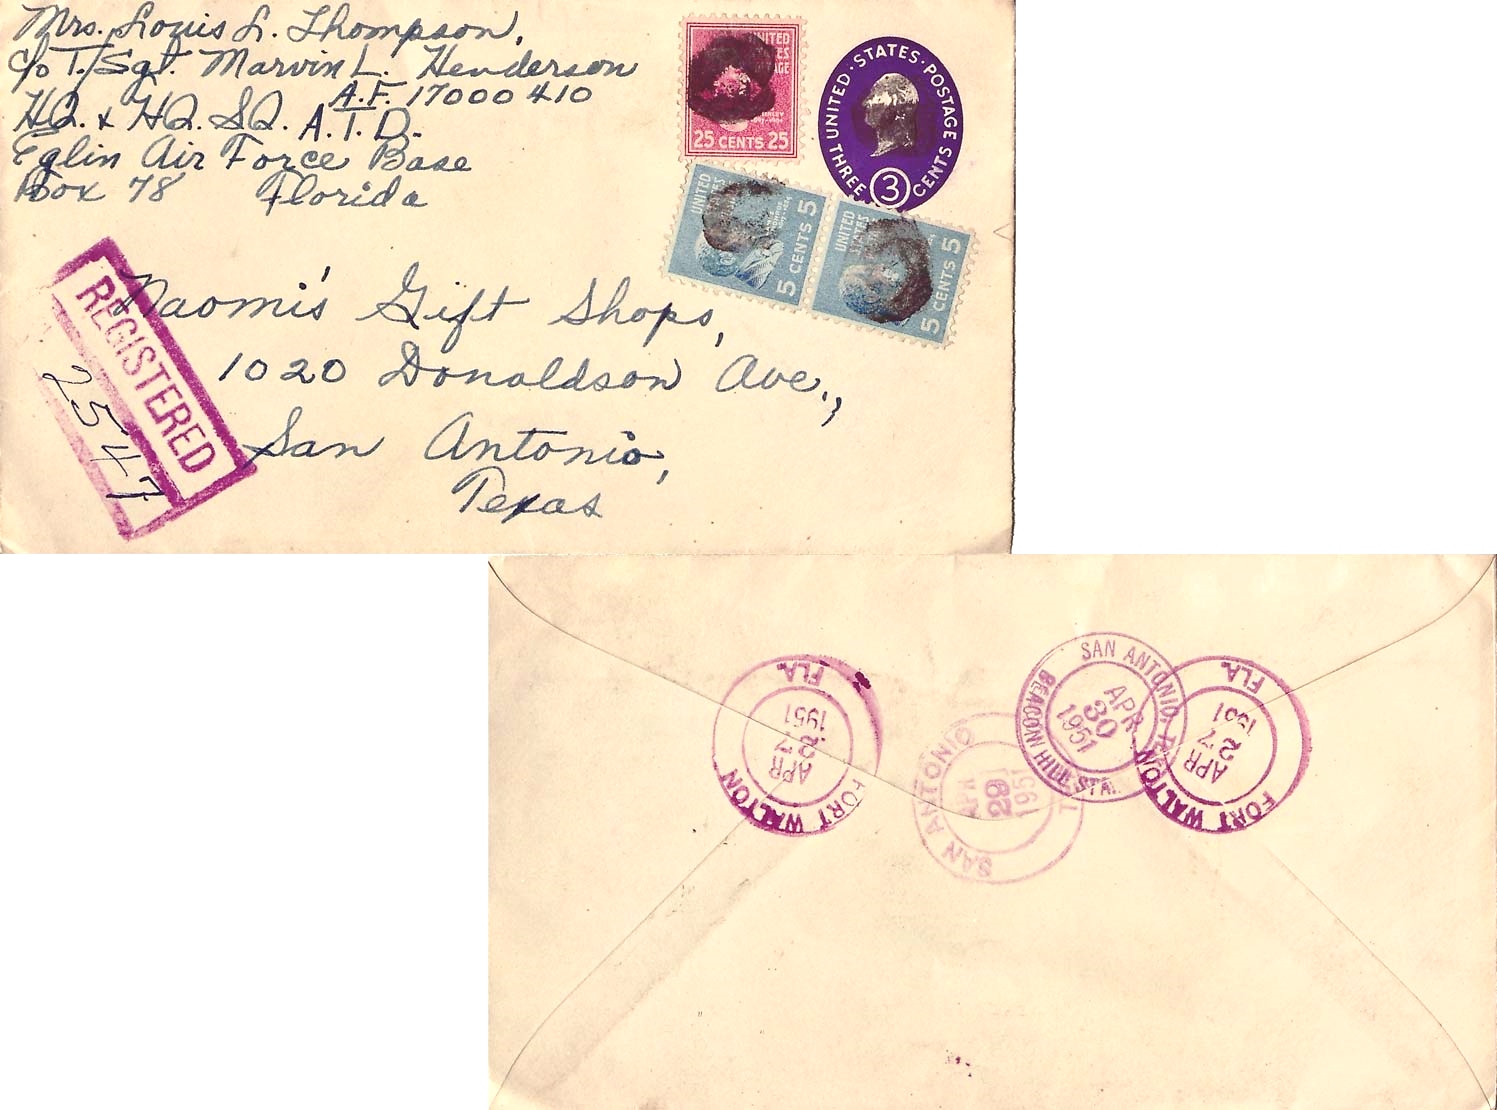 Mrs. Louis L. Thompson,
c/o T/Sgt. Marvin L. Henderson
A.F. 17000410
HQ. & HQ. SQ. A.T.D.
Eglin Air Force Base
Box 78 Florida
UNITED STATES POSTAGE
25 CENTS 25
UNITED·STATES·POSTAGE
THREE 3 CENTS
UNITED STATES
5 CENTS 5
UNITED STATES
5 CENTS 5
REGISTERED
2547
Naomi's Gift Shops,
1020 Donaldson Ave.,
San Antonio,
Texas
FORT WALTON FLA.
APR
27
1951
SAN ANTONIO
APR
29
1951
SAN ANTONIO, TEX.
BEACON HILL STA.
APR
30
1951
FORT WALTON FLA.
APR
27
1951